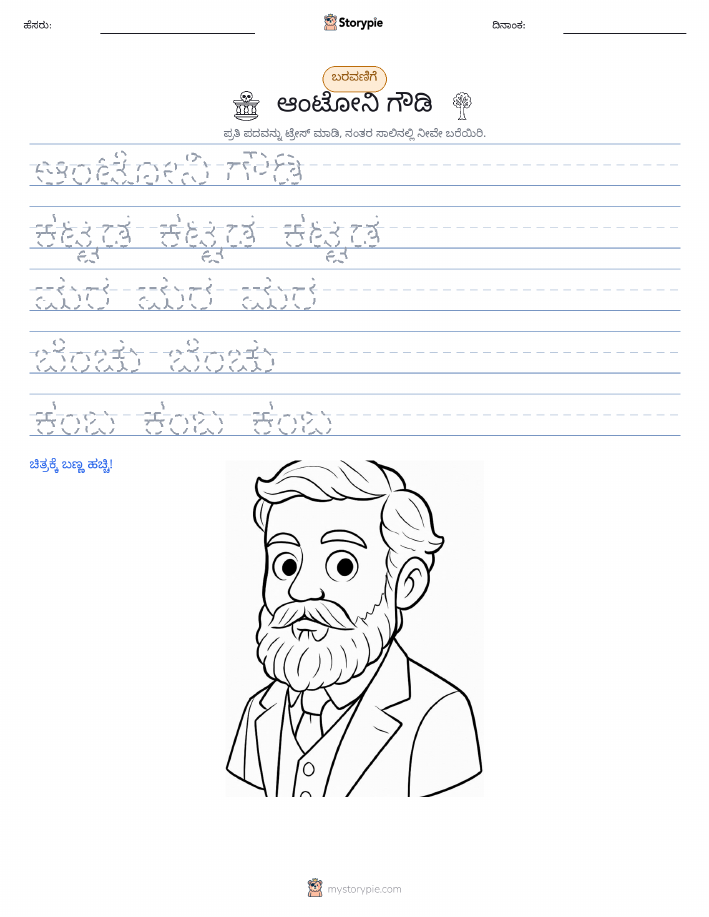 ಹೆಸರು: Storypie ದಿನಾಂಕ:
ಬರವಣಿಗೆ
ಆಂಟೋನಿ ಗೌಡಿ
ಪ್ರತಿ ಪದವನ್ನು ಟ್ರೇಸ್ ಮಾಡಿ, ನಂತರ ಸಾಲಿನಲ್ಲಿ ನೀವೇ ಬರೆಯಿರಿ.
ಆಂಟೋನಿ ಗೌಡಿ
ಕಟ್ಟಡ ಕಟ್ಟಡ ಕಟ್ಟಡ
ಮರ ಮರ ಮರ
ಬೆಂಚು ಬೆಂಚು
ಕಂಬ ಕಂಬ ಕಂಬ
ಚಿತ್ರಕ್ಕೆ ಬಣ್ಣ ಹಚ್ಚಿ!
mystorypie.com